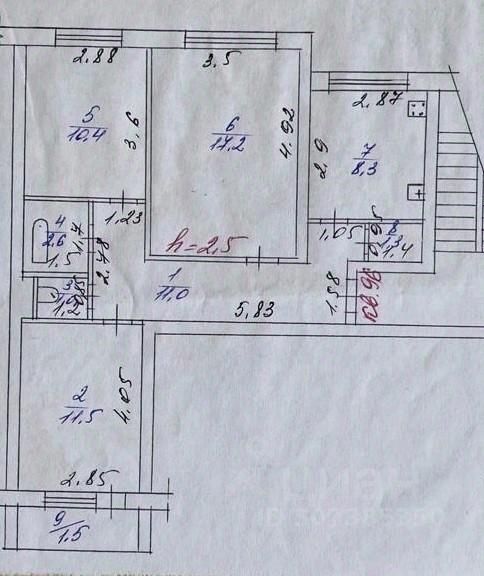 2,88
3,5
2,87
5
10,4
3,6
6
17,2
4,92
2,9
7
8,3
1,23
4
2,6
1,7
1,5
2,48
h=2,5
1,05
0,95
8
1,3
1,4
3
0,85
1
11,0
5,83
1,58
кв.96
2
11,5
4,05
2,85
9
1,5
циан